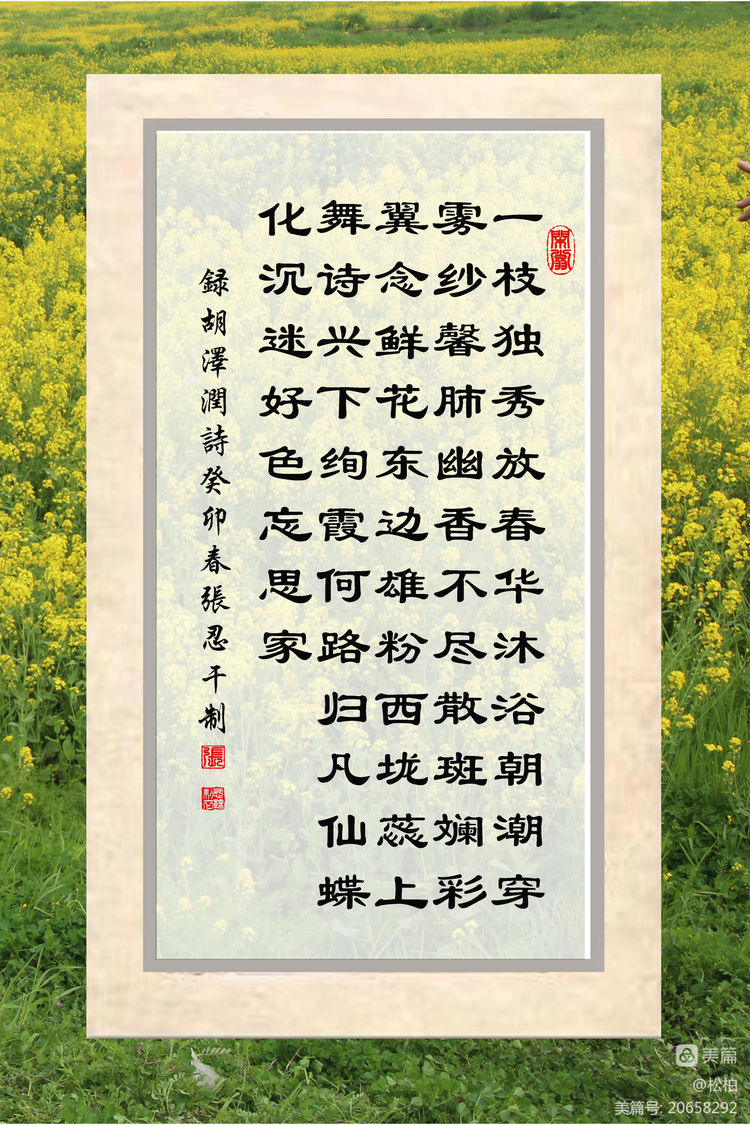 一枝独秀放春华沐浴朝潮穿
雾纱馨肺幽香不尽散斑斓彩
翼念鲜花东边雄粉西垅蕊上
舞诗兴下绚霞何路归凡仙蝶
化沉迷好色忘思家
録胡澤潤詩癸卯春張忍干制
張
美篇
@松柏
美篇号: 20658292